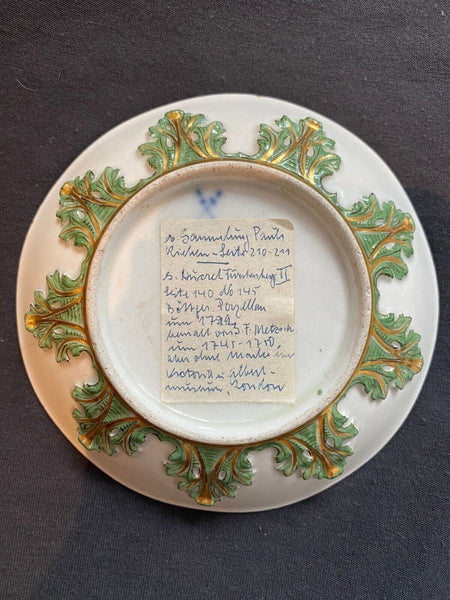 s. Sammlung Pauls
Riehen - Seite 210-211
s. Ducret Fürstenberg II
Seite 140 No 145
Böttger Porzellan
um 
bemalt von F. Metzsch
um 1745-1750,
aber ohne Marke im
Victoria u. Albert-
museum, London